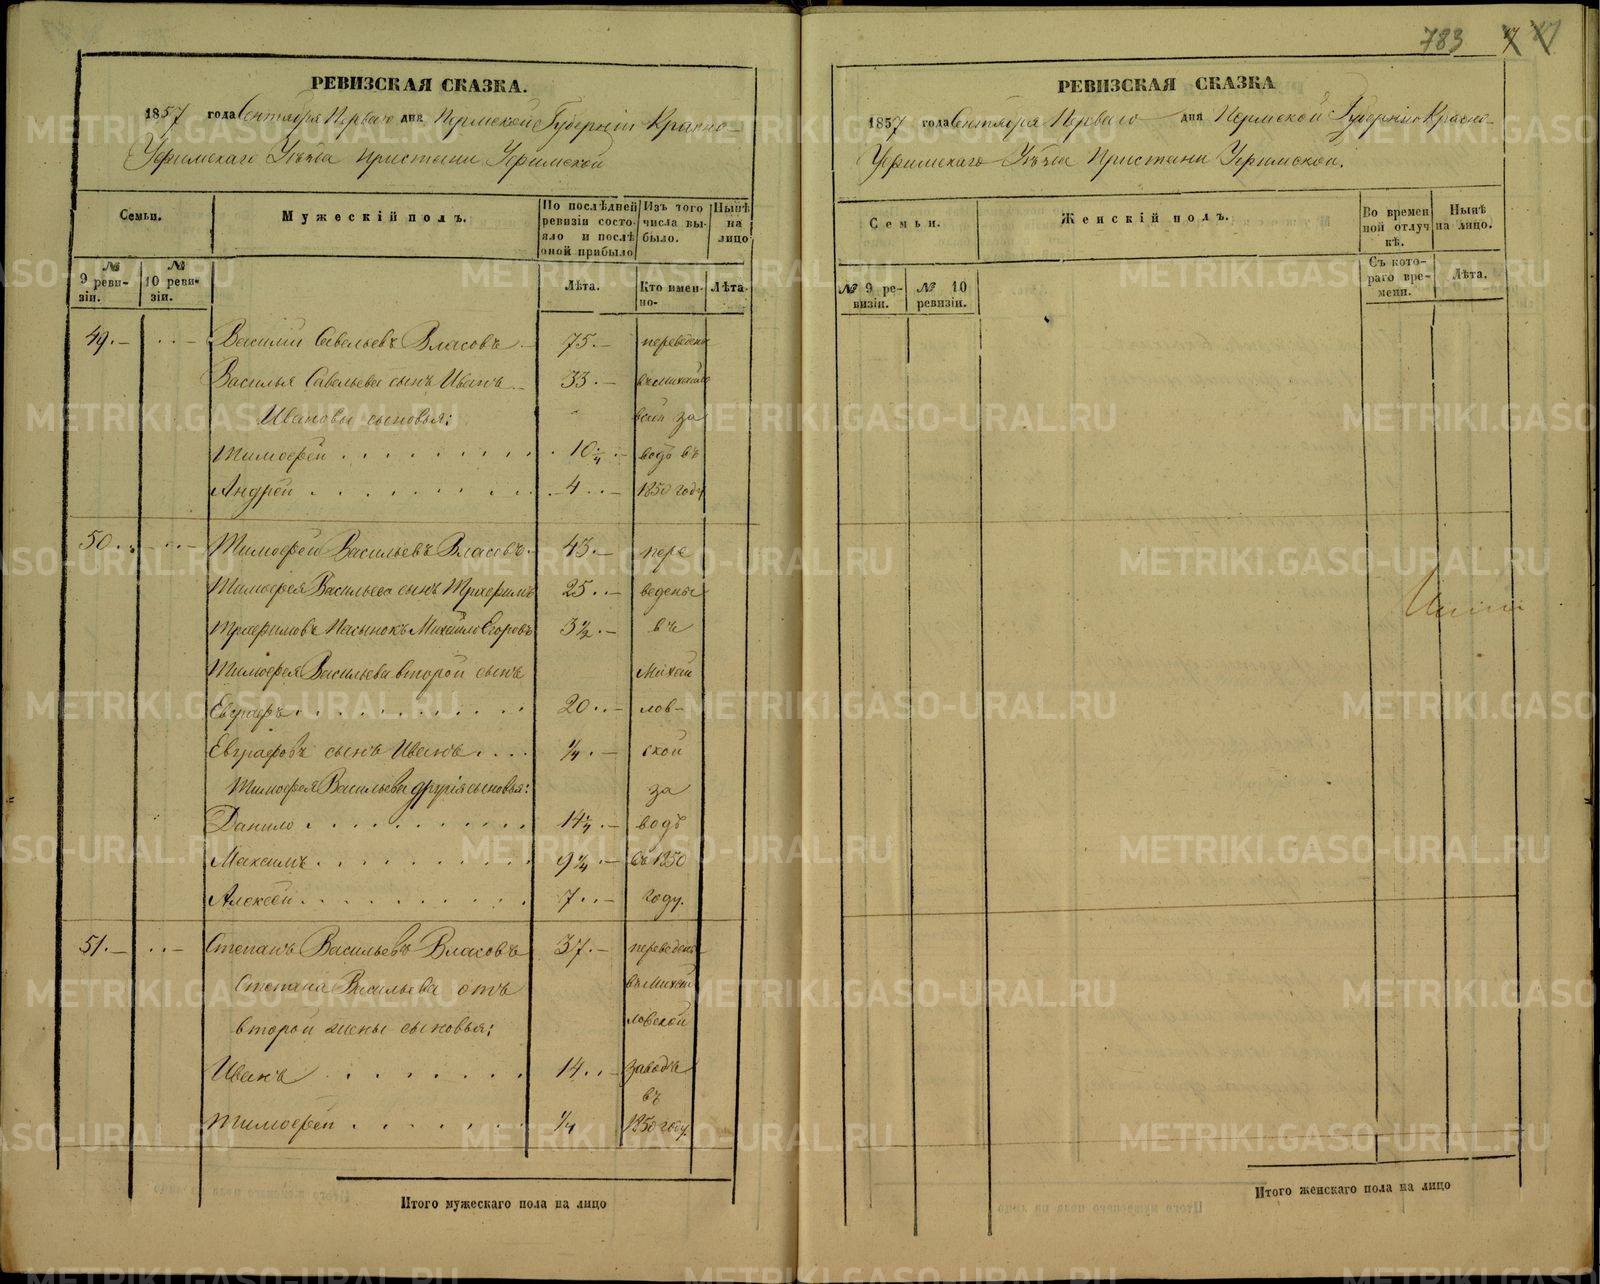 РЕВИЗСКАЯ СКАЗКА.
1857 года Сентября Перваго дня Пермской Губерніи Красно-
Уфимскаго Уѣзда Пристани Уфимской
Семьи.
Мужескій полъ.
По послѣдней ревизіи состояло и послѣ оной прибыло
Изъ того числа выбыло.
Нынѣ на лицо
№ 9 ревизіи.
№ 10 ревизіи.
Лѣта.
Кто именно.
Лѣта.
49.— ..— Василій Савельевъ Власовъ 75.— переведены
Василья Савельева сынъ Иванъ 33.— въ Михайло
Ивановы сыновья: вской за
Тимофей 10 1/4.— водъ въ
Андрей 4..— 1850 году
50.. ..— Тимофей Васильевъ Власовъ.— 43.— пере
Тимофея Васильева сынъ Трофимъ 25..— ведены
Трофимовъ Пасынокъ Михайло Егоровъ 3 1/2.— въ
Тимофея Васильева второй сынъ Михай
Евграфъ 20..— лов-
Евграфовъ сынъ Иванъ 1/4.— ской
Тимофея Васильева другія сыновья: за
Данило 14 1/4.— водъ
Максимъ 9 1/4.— въ 1850
Алексей 7..— году.
51.— ..— Степанъ Васильевъ Власовъ 37.— переведены
Степана Васильева отъ въ Михай
второй жены сыновья: ловской
Иванъ 14..— заводъ
въ
Тимофей 1/4 1850 году.
Итого мужескаго пола на лицо
783 17
РЕВИЗСКАЯ СКАЗКА
1857 года Сентября Перваго дня Пермской Губерніи Красно-
Уфимскаго Уѣзда Пристани Уфимской.
Семьи.
Женскій полъ.
Во временной отлучкѣ.
Нынѣ на лицо.
№ 9 ревизіи.
№ 10 ревизіи.
Съ котораго времени.
Лѣта.
Итого женскаго пола на лицо
METRIKI.GASO-URAL.RU